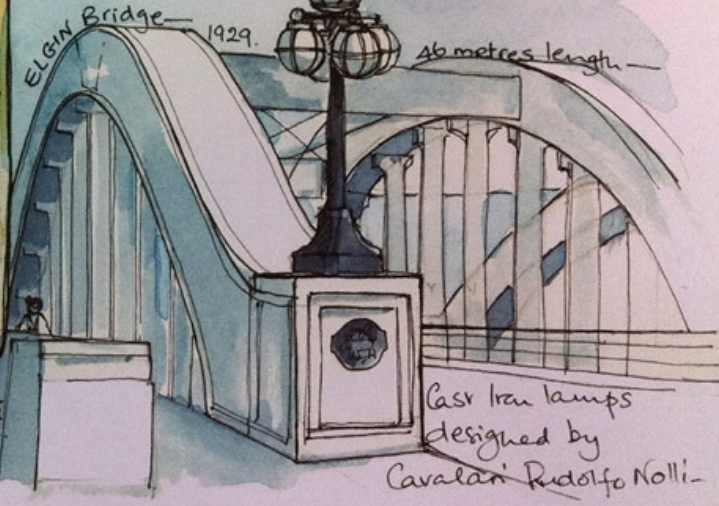 ELGIN Bridge — 1929.
46 metres length —
Cast Iron lamps
designed by
Cavalari Rudolfo Nolli -